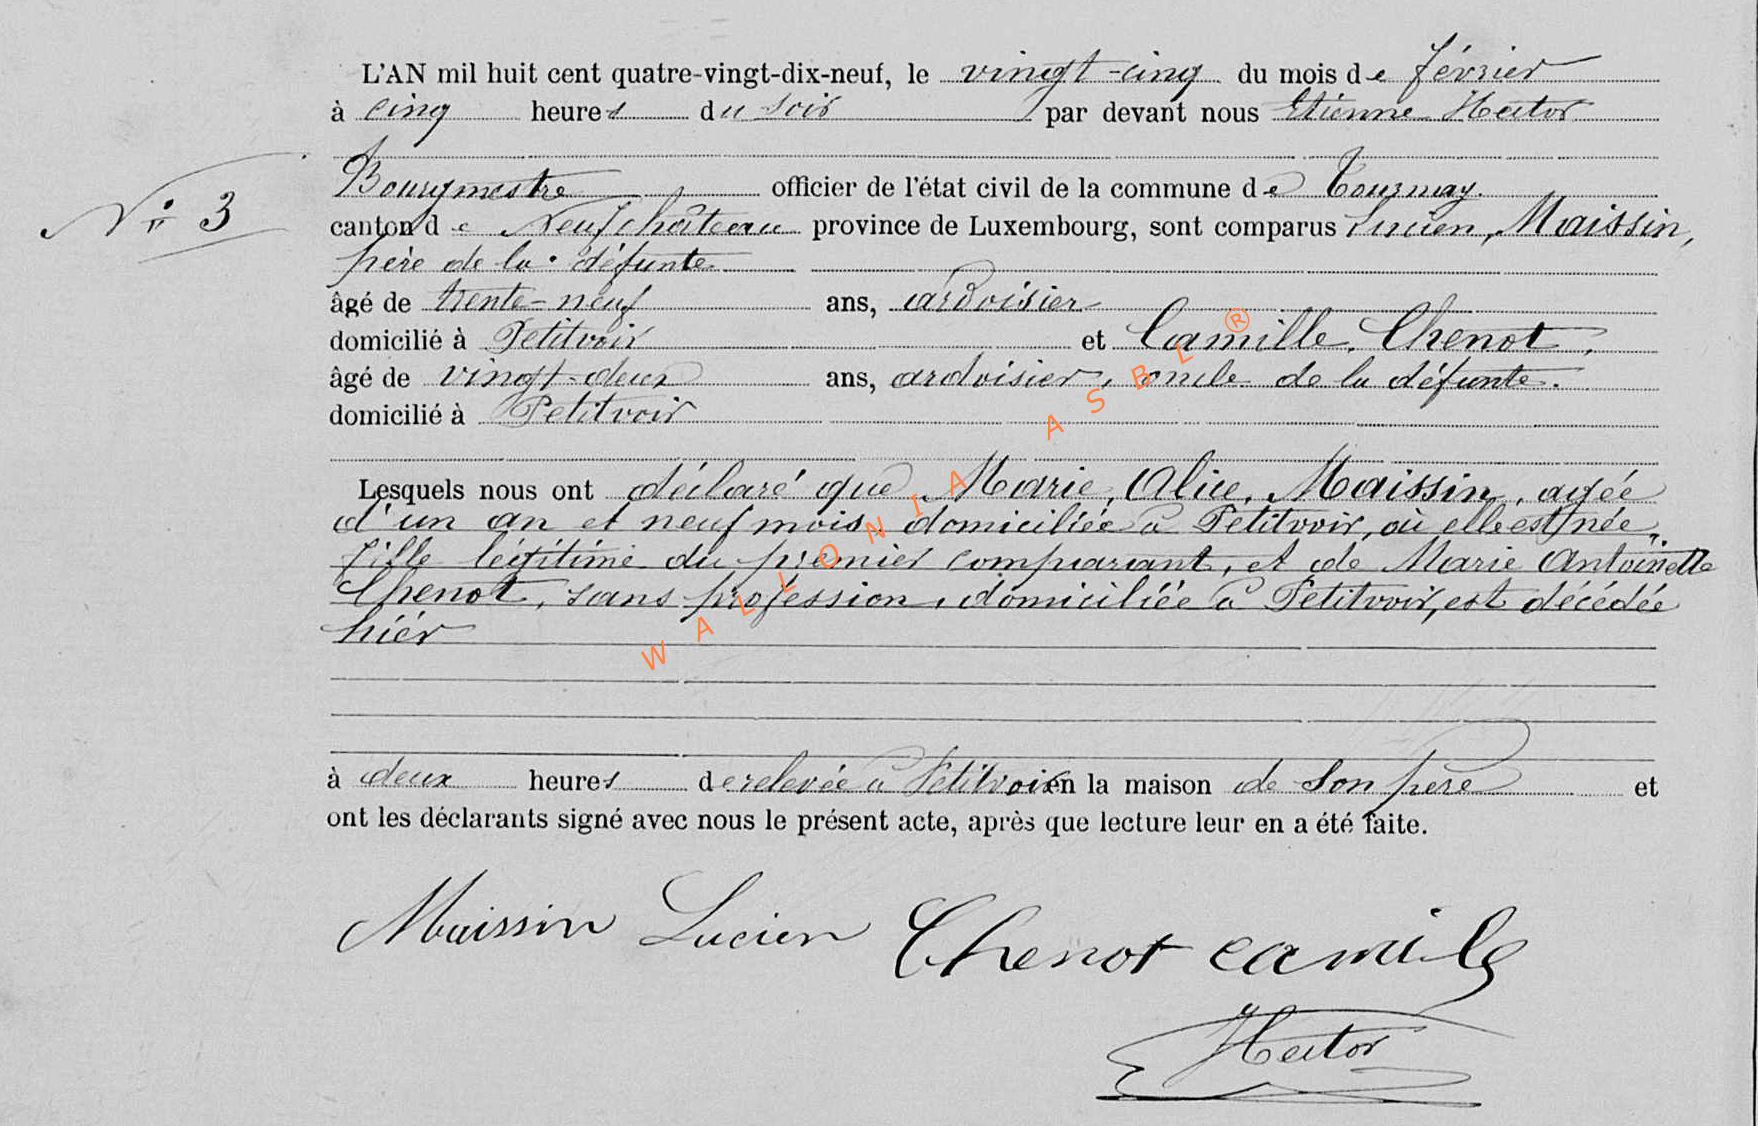 L'AN mil huit cent quatre-vingt-dix-neuf, le vingt-cinq du mois de février
à cinq heures du soir par devant nous Etienne Hector
Bourgmestre officier de l'état civil de la commune de Tournay.
N° 3
canton de Neufchâteau province de Luxembourg, sont comparus Lucien, Maissin,
père de la défunte
âgé de trente-neuf ans, ardoisier
domicilié à Petitvoir et Camille, Chenot,
âgé de vingt-deux ans, ardoisier, oncle de la défunte.
domicilié à Petitvoir
Lesquels nous ont déclaré que Marie, Alice, Maissin, agée
d'un an et neuf mois, domiciliée à Petitvoir, où elle est née,
fille légitime du premier comparant, et de Marie Antoinette
Chenot, sans profession, domiciliée à Petitvoir, est décédée
hier
à deux heures de relevée à Petitvoir en la maison de son père et
ont les déclarants signé avec nous le présent acte, après que lecture leur en a été faite.
Maissin Lucien Chenot camile
Hector
WALLONIA ASBL ®